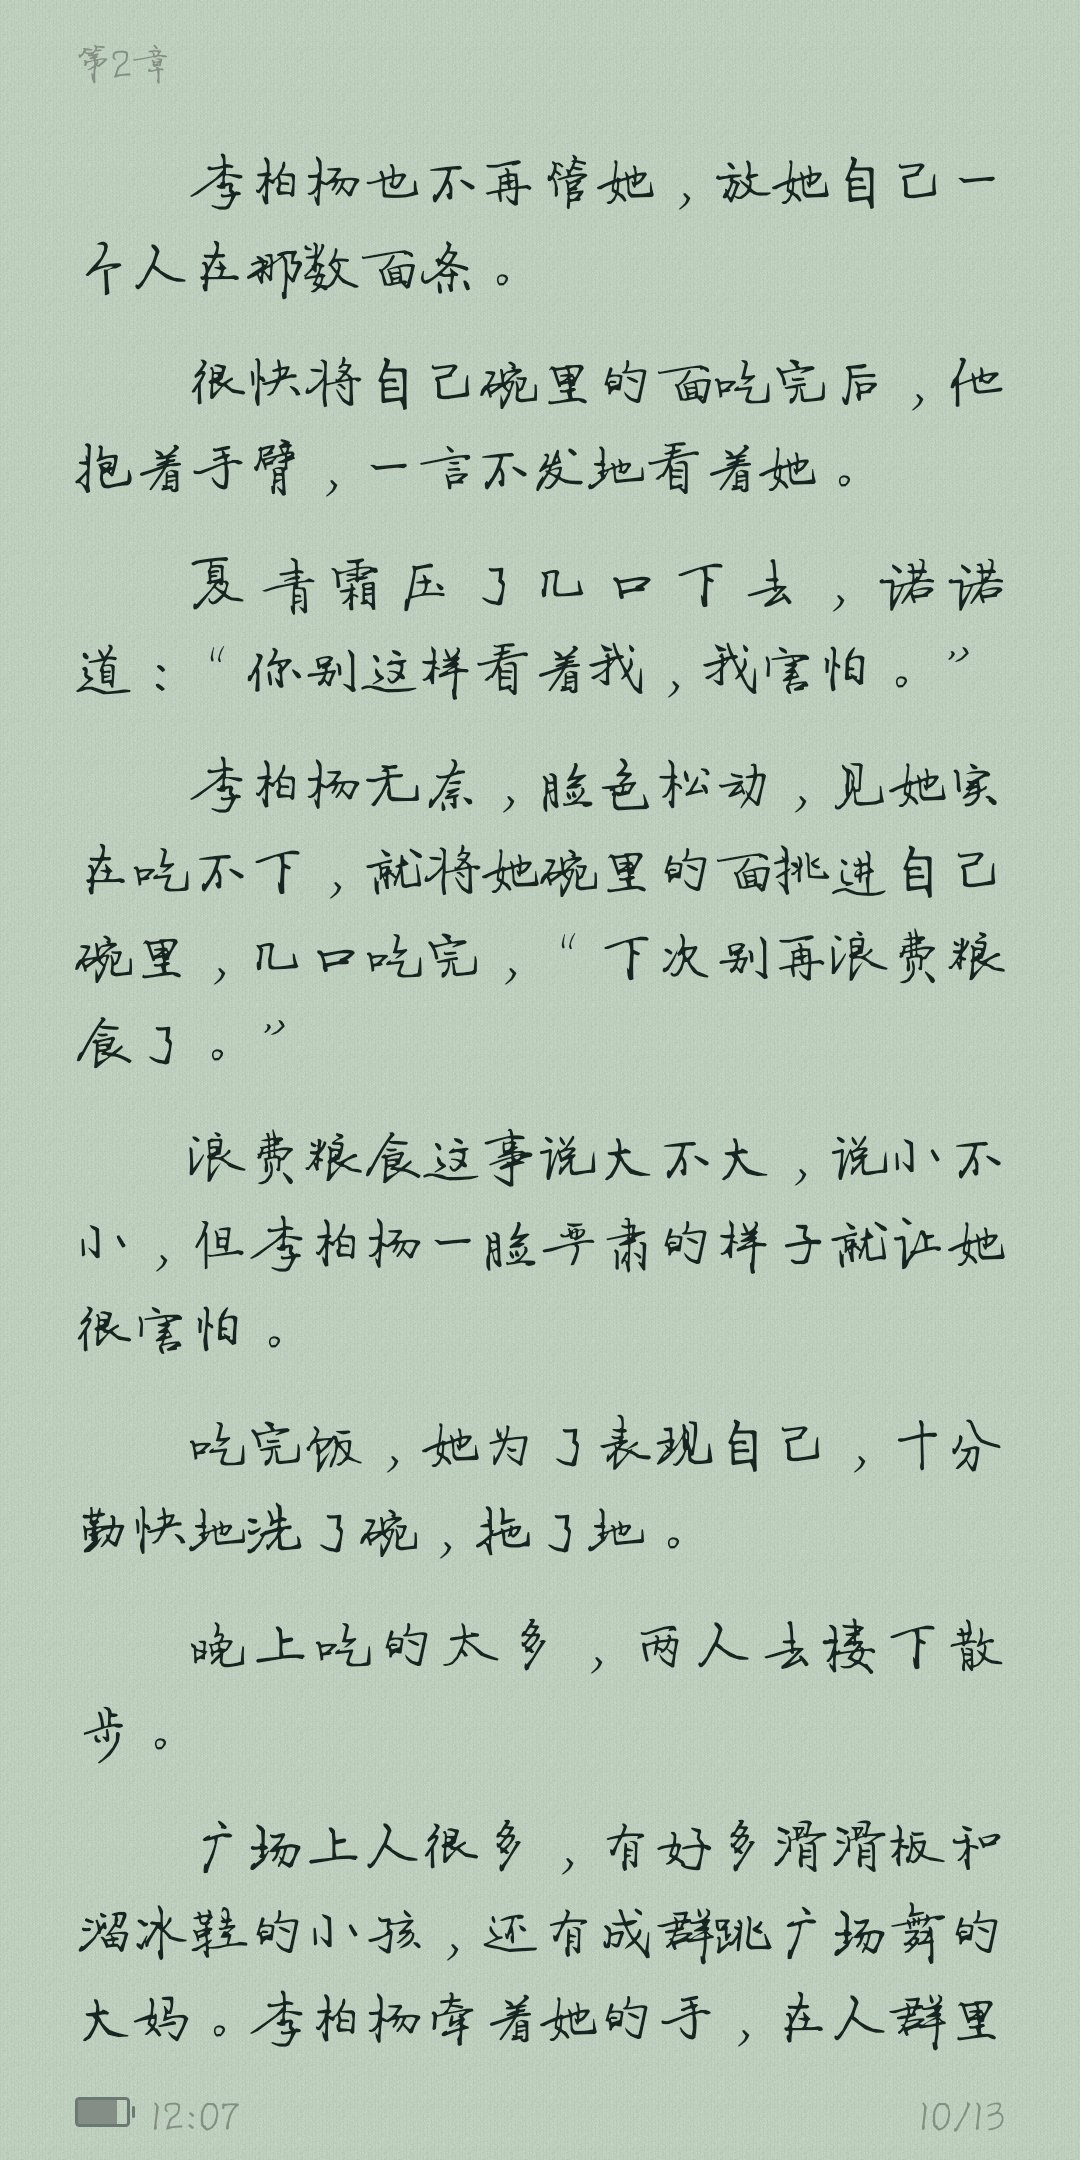 第2章
李柏杨也不再管她，放她自己一
个人在那数面条。
很快将自己碗里的面吃完后，他
抱着手臂，一言不发地看着她。
夏青霜压了几口下去，诺诺
道：“你别这样看着我，我害怕。”
李柏杨无奈，脸色松动，见她实
在吃不下，就将她碗里的面挑进自己
碗里，几口吃完，“下次别再浪费粮
食了。”
浪费粮食这事说大不大，说小不
小，但李柏杨一脸严肃的样子就让她
很害怕。
吃完饭，她为了表现自己，十分
勤快地洗了碗，拖了地。
晚上吃的太多，两人去楼下散
步。
广场上人很多，有好多滑滑板和
溜冰鞋的小孩，还有成群跳广场舞的
大妈。李柏杨牵着她的手，在人群里
12:07
10/13